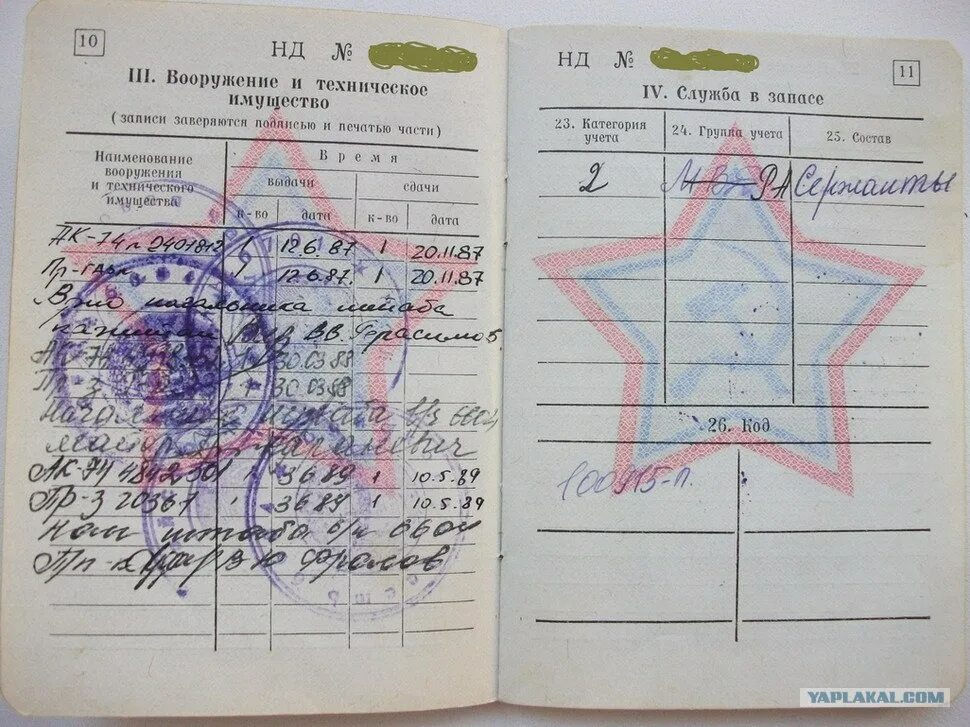 10
НД №
III. Вооружение и техническое
имущество
(записи заверяются подписью и печатью части)
Наименование
вооружения
и технического
имущества
Время
выдачи
сдачи
к-во
дата
к-во
дата
АК-74 1 12.6.87 1 20.11.87
1 12.6.87. 1 20.11.87
Врио начальника штаба
В.В. Герасимов
АК-74 30.03.88
Пр-3 30.03.88
Начальник штаба в/ч
майор
АК-74 1 3.6.89 1 10.5.89
Пр-3 20361 1 3.6.89 1 10.5.89
Нач штаба в/ч
Фролов
НД №
11
IV. Служба в запасе
23. Категория
учета
24. Группа учета
25. Состав
2 РА Сержанты
26. Код
100915-п.
YAPLAKAL.COM